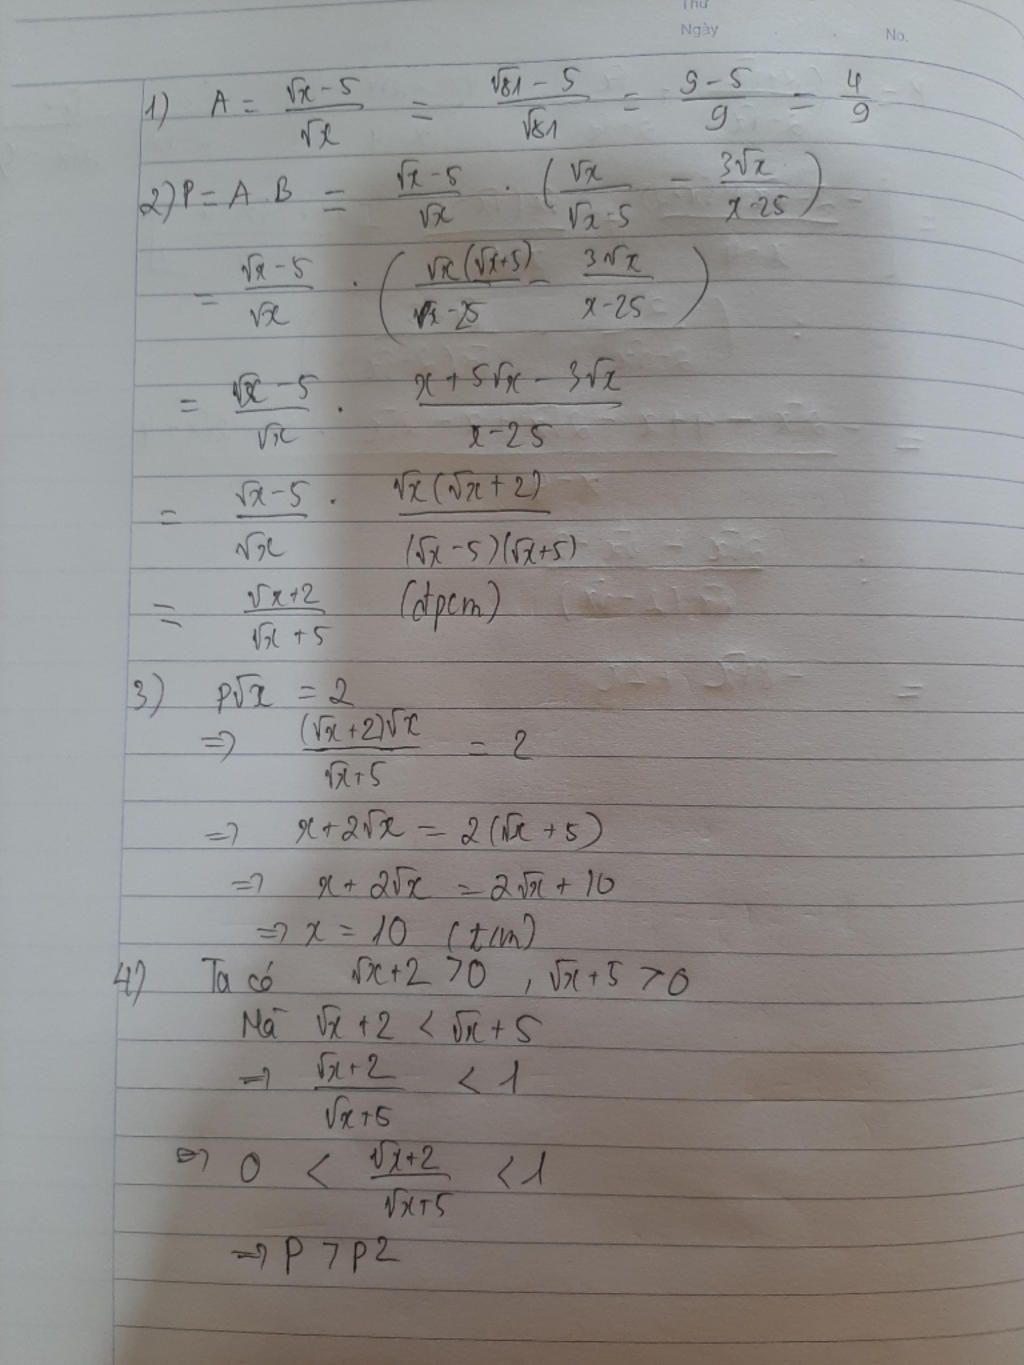 Thứ
Ngày
No.
1) A = (√x - 5)/√x = (√81 - 5)/√81 = (9 - 5)/9 = 4/9
2) P = A . B = (√x - 5)/√x . (√x/(√x - 5) - 3√x/(x - 25))
= (√x - 5)/√x . (√x(√x+5)/(x - 25) - 3√x/(x - 25))
= (√x - 5)/√x . (x + 5√x - 3√x)/(x - 25)
= (√x - 5)/√x . √x(√x + 2)/((√x - 5)(√x + 5))
= (√x + 2)/(√x + 5) (đpcm)
3) P√x = 2
=> (√x + 2)√x/(√x + 5) = 2
=> x + 2√x = 2(√x + 5)
=> x + 2√x = 2√x + 10
=> x = 10 (t/m)
4) Ta có √x + 2 > 0 , √x + 5 > 0
Mà √x + 2 < √x + 5
=> (√x + 2)/(√x + 5) < 1
=> 0 < (√x + 2)/(√x + 5) < 1
=> P > P2